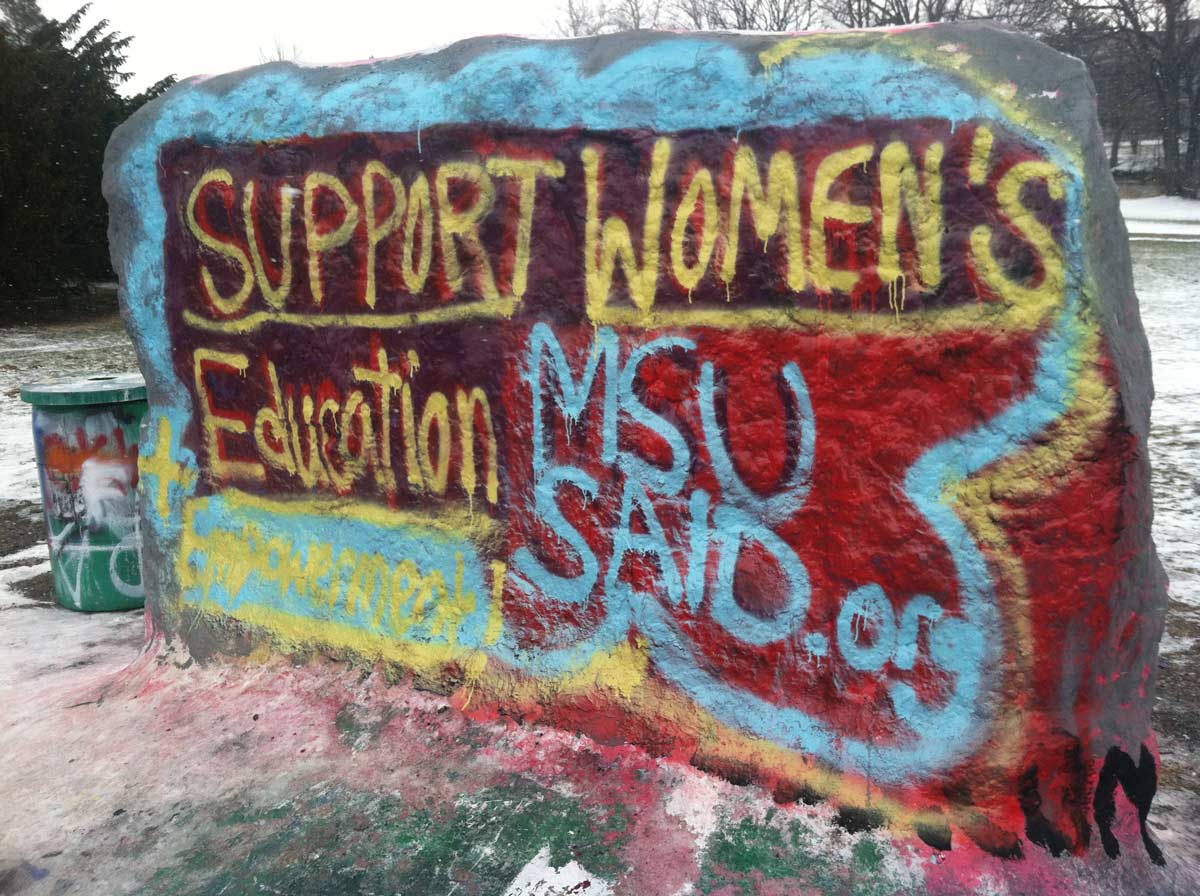 SUPPORT WOMEN'S
Education
+ Empowerment!
MSU
SAID.org